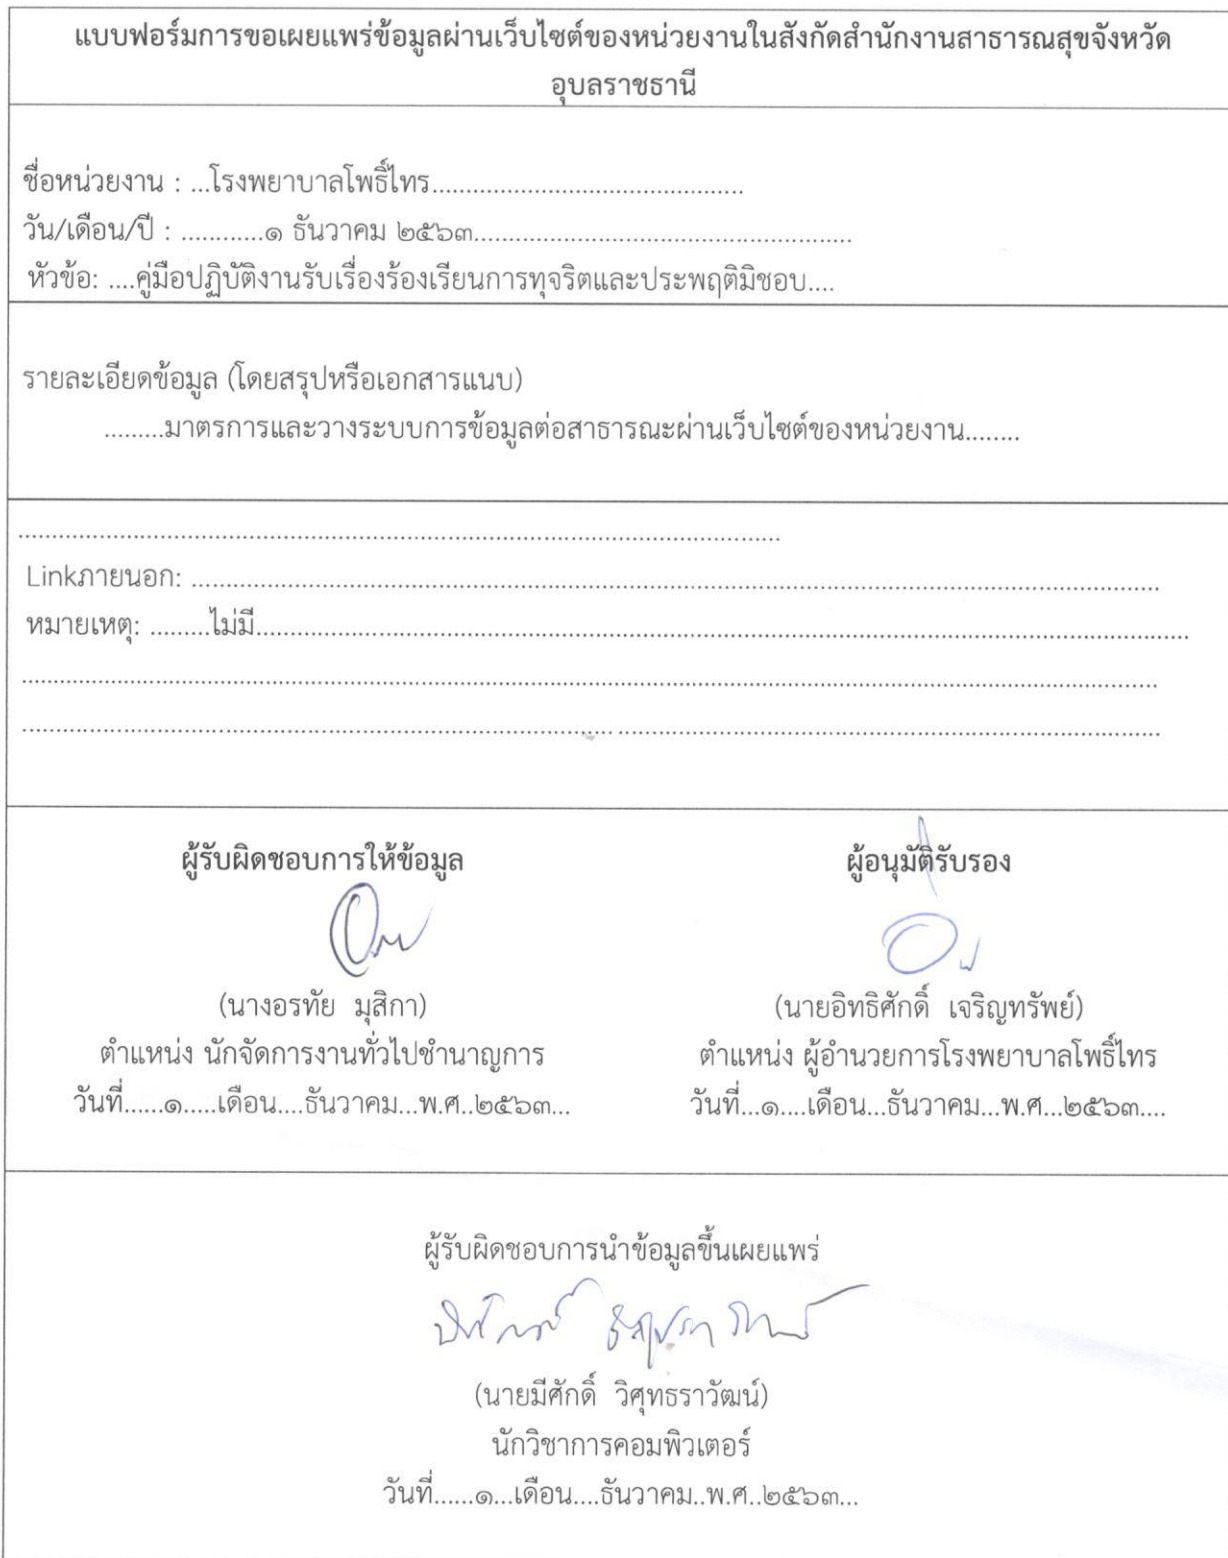 แบบฟอร์มการขอเผยแพร่ข้อมูลผ่านเว็บไซต์ของหน่วยงานในสังกัดสำนักงานสาธารณสุขจังหวัด
อุบลราชธานี
ชื่อหน่วยงาน : ...โรงพยาบาลโพธิ์ไทร.............................................
วัน/เดือน/ปี : ............๑ ธันวาคม ๒๕๖๓.......................................................
หัวข้อ: ....คู่มือปฏิบัติงานรับเรื่องร้องเรียนการทุจริตและประพฤติมิชอบ....
รายละเอียดข้อมูล (โดยสรุปหรือเอกสารแนบ)
.........มาตรการและวางระบบการข้อมูลต่อสาธารณะผ่านเว็บไซต์ของหน่วยงาน........
Linkภายนอก: ..........................................................................................
หมายเหตุ: .........ไม่มี..........................................................................................
ผู้รับผิดชอบการให้ข้อมูล
ผู้อนุมัติรับรอง
(นางอรทัย มุสิกา)
(นายอิทธิศักดิ์ เจริญทรัพย์)
ตำแหน่ง นักจัดการงานทั่วไปชำนาญการ
ตำแหน่ง ผู้อำนวยการโรงพยาบาลโพธิ์ไทร
วันที่......๑.....เดือน....ธันวาคม...พ.ศ..๒๕๖๓...
วันที่...๑....เดือน...ธันวาคม...พ.ศ...๒๕๖๓....
ผู้รับผิดชอบการนำข้อมูลขึ้นเผยแพร่
(นายมีศักดิ์ วิศุทธราวัฒน์)
นักวิชาการคอมพิวเตอร์
วันที่......๑...เดือน....ธันวาคม..พ.ศ..๒๕๖๓...